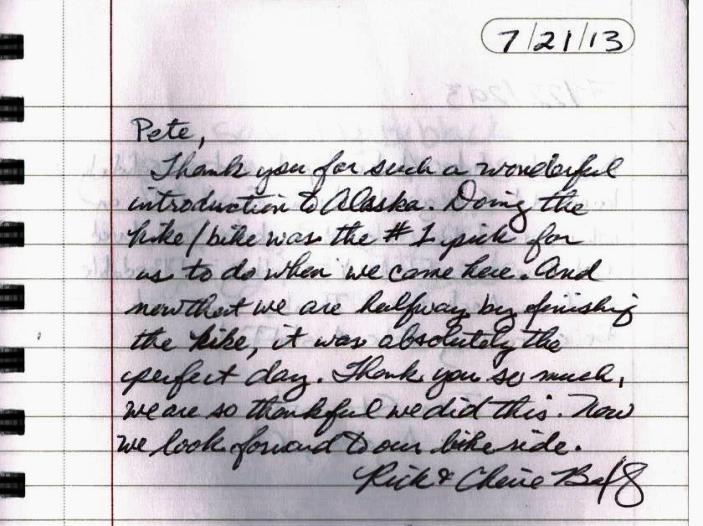 7/21/13
Pete,
Thank you for such a wonderful
introduction to Alaska. Doing the
hike/bike was the #1 pick for
us to do when we came here. And
now that we are halfway by finishing
the hike, it was absolutely the
perfect day. Thank you so much,
we are so thankful we did this. Now
we look forward to our bike ride.
Rick & Cherie